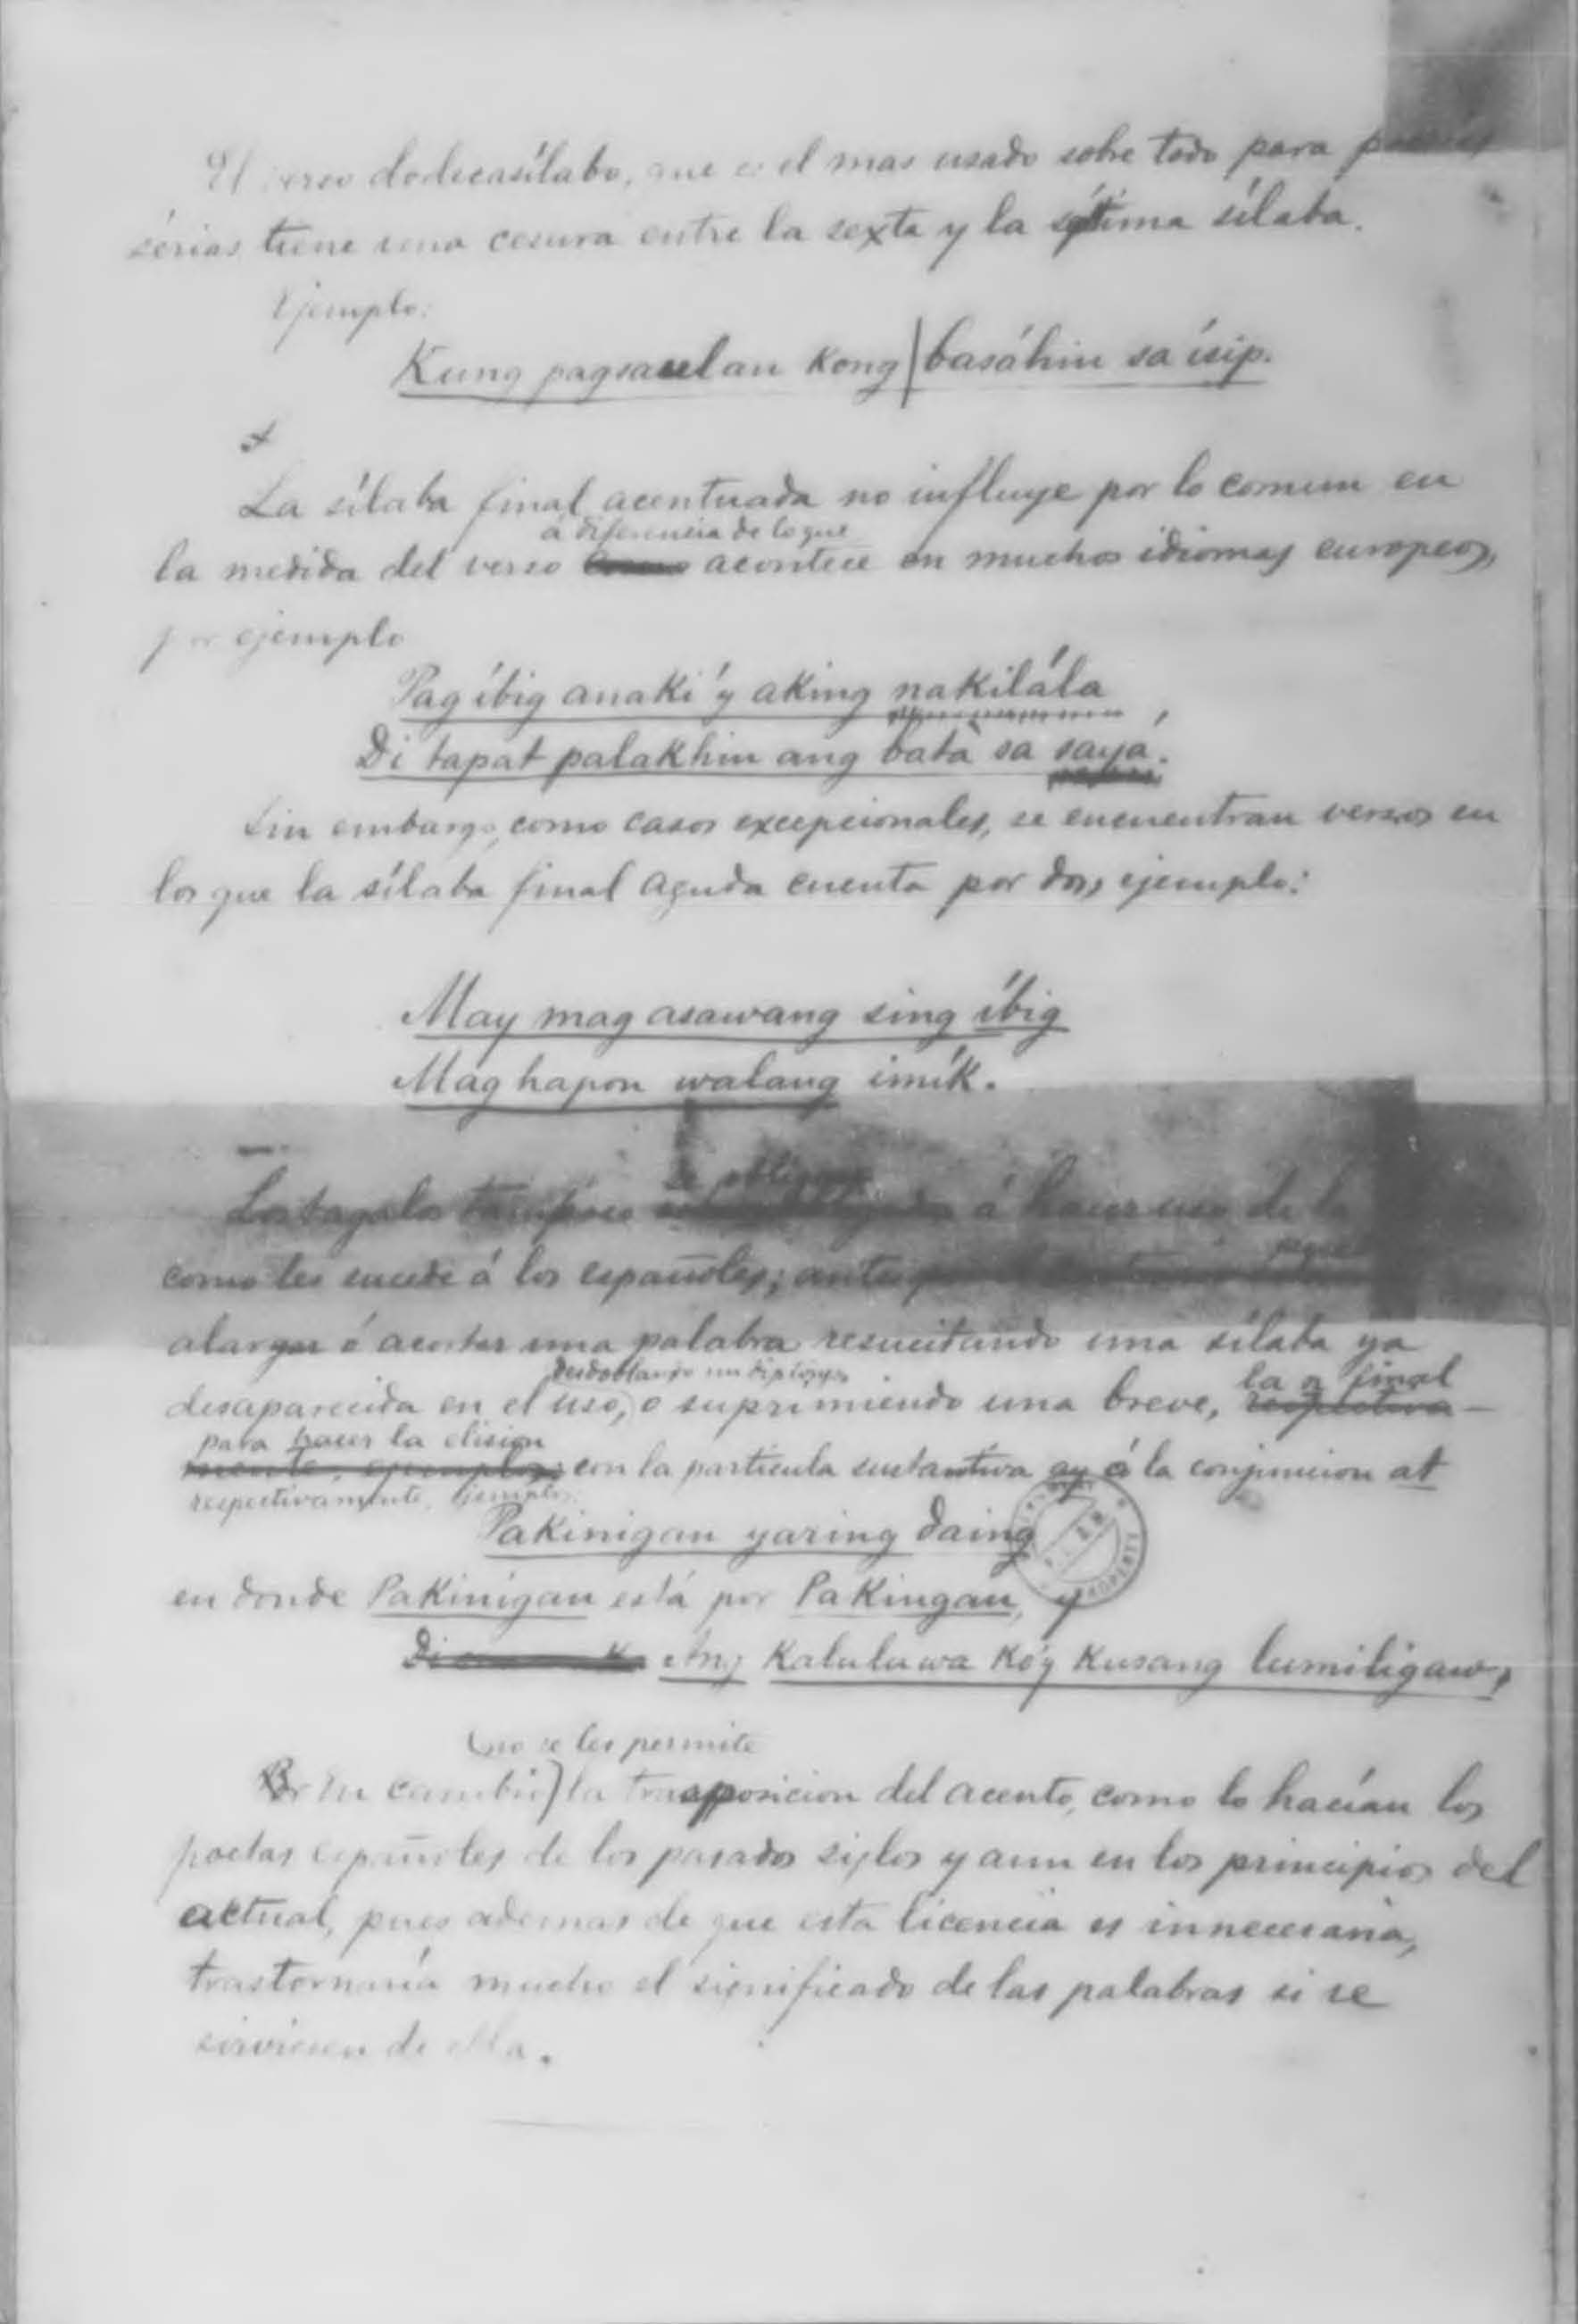 El verso dodecasílabo, que es el mas usado sobre todo para
sérias tiene una cesura entre la sexta y la sétima sílaba.
Ejemplo:
Kung pagsaulan kong | basáhin sa ísip.
La sílaba final acentuada no influye por lo comun en
á diferencia de lo que
la medida del verso acontece en muchos idiomas europeos,
por ejemplo
Pag íbig anaki'y aking nakilála
Di tapat palakhin ang batà sa sayá.
Sin embargo, como casos excepcionales, se encuentran versos en
los que la sílaba final aguda cuenta por dos, ejemplo:
May mag asawang sing íbig
Maghapon walang imík.
se obligan
Los tagalos tampoco á hacer uso de la
como les sucede á los españoles; antes
alargar ó acortar una palabra resucitando una sílaba ya
desdoblando un diptongo
desaparecida en el uso, o suprimiendo una breve, la n final
para hacer la elision
con la partícula sustantiva ay ó la conjuncion at
respectivamente, ejemplo:
Pakinigan yaring daing
en donde Pakinígan está por Pakingan, y
Ang kaluluwa ko'y kusang lumiligaw,
no se les permite
En cambio la trasposicion del acento, como lo hacían los
poetas españoles de los pasados siglos y aun en los principios del
actual, pues ademas de que esta licencia es innecesaria,
trastornaría mucho el significado de las palabras si se
sirviesen de ella.